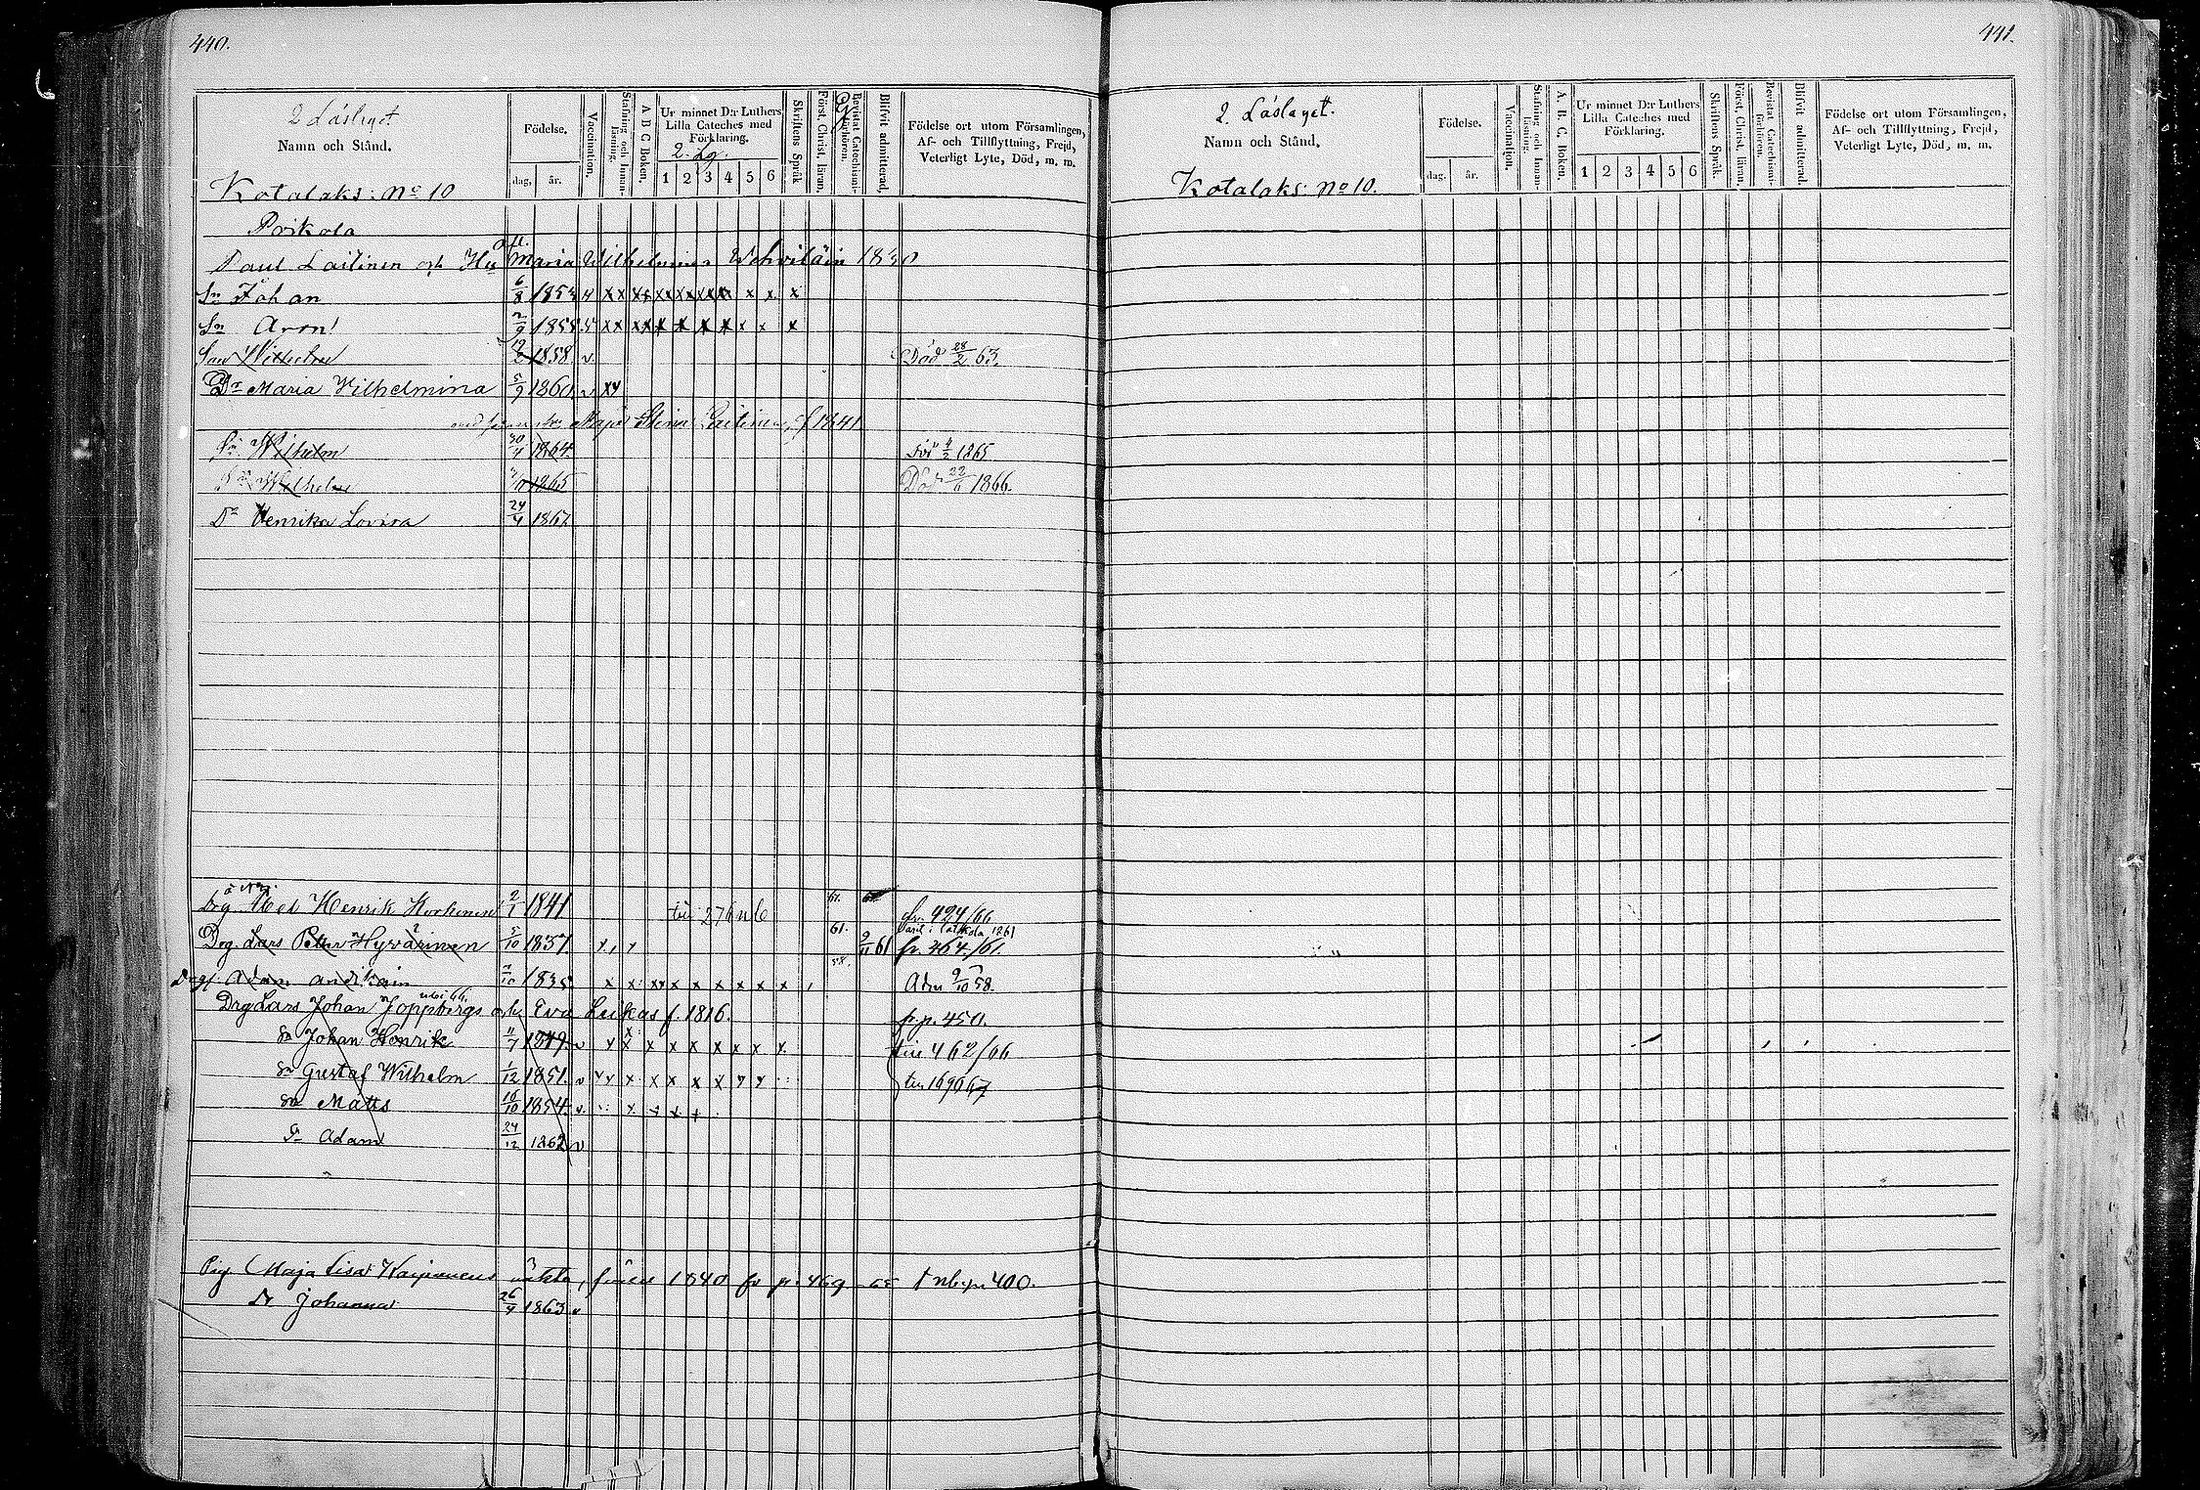 440.
2 Läslaget
Namn och Stånd.
Födelse.
dag, år.
Vaccination.
Stafning och Innan-läsning.
A B C Boken.
Ur minnet D:r Luthers Lilla Cateches med Förklaring.
2. Lg.
1 2 3 4 5 6
Skriftens Språk
Först. Christ. läran.
Bevistat Catechismi-förhören.
Blifvit admitterad.
Födelse ort utom Församlingen, Af- och Tillflyttning, Frejd, Veterligt Lyte, Död, m. m.
Kotalaks: No 10
Poikola
Paul Laitinen och Hu afl. Maria Wilhelmina Wehviläin 1830
Sn Johan 6/8 1853 x x x x x x
Sn Aron 2/9 1855 x x x x x x
Son Wilhelm 19/2 1858. v Död 28/2 63.
Dr Maria Vilhelmina 5/9 1860. v xy
Maja Stina Laitinen, f 1841
Sn Wilhelm 30/1 1864 1865
Sn Wilhelm 1865 Död 22/6 1866.
Dr Henrika Lovisa 24/4 1867
Drg Abel Henrik Korhonen 2/1 1841 61. fr. 424/66
Drg. Lars Petter Hyvärinen 5/10 1837. 61. 9/11 61 fr. 464/61.
Adam 7/10 1835 58. x x x x x x x x x Adm 9/10 58.
Drg Lars Johan Joppbergs och hu Eva Lukas f. 1816. fr p. 450.
Sn Johan Henrik 11/7 1849. v x x x x x x x x 462/66
Sn Gustaf Wilhelm 1/12 1851. v x x x x x
Sn Matts 16/10 1854. v. x x x x
Sn Adam 24/12 1862 v
Pig. Maja Lisa oäkta, 1840 fr p. 469 400.
Dr Johanna 26/4 1863 v
441.
2. Läslaget.
Namn och Stånd.
Födelse.
dag. år.
Vaccination.
Stafning och Innan-läsning.
A. B. C. Boken.
Ur minnet D:r Luthers Lilla Cateches med Förklaring.
1 2 3 4 5 6
Skriftens Språk.
Först. Christ. läran.
Bevistat Catechismi-förhören.
Blifvit admitterad.
Födelse ort utom Församlingen, Af- och Tillflyttning, Frejd, Veterligt Lyte, Död, m. m.
Kotalaks: No 10.